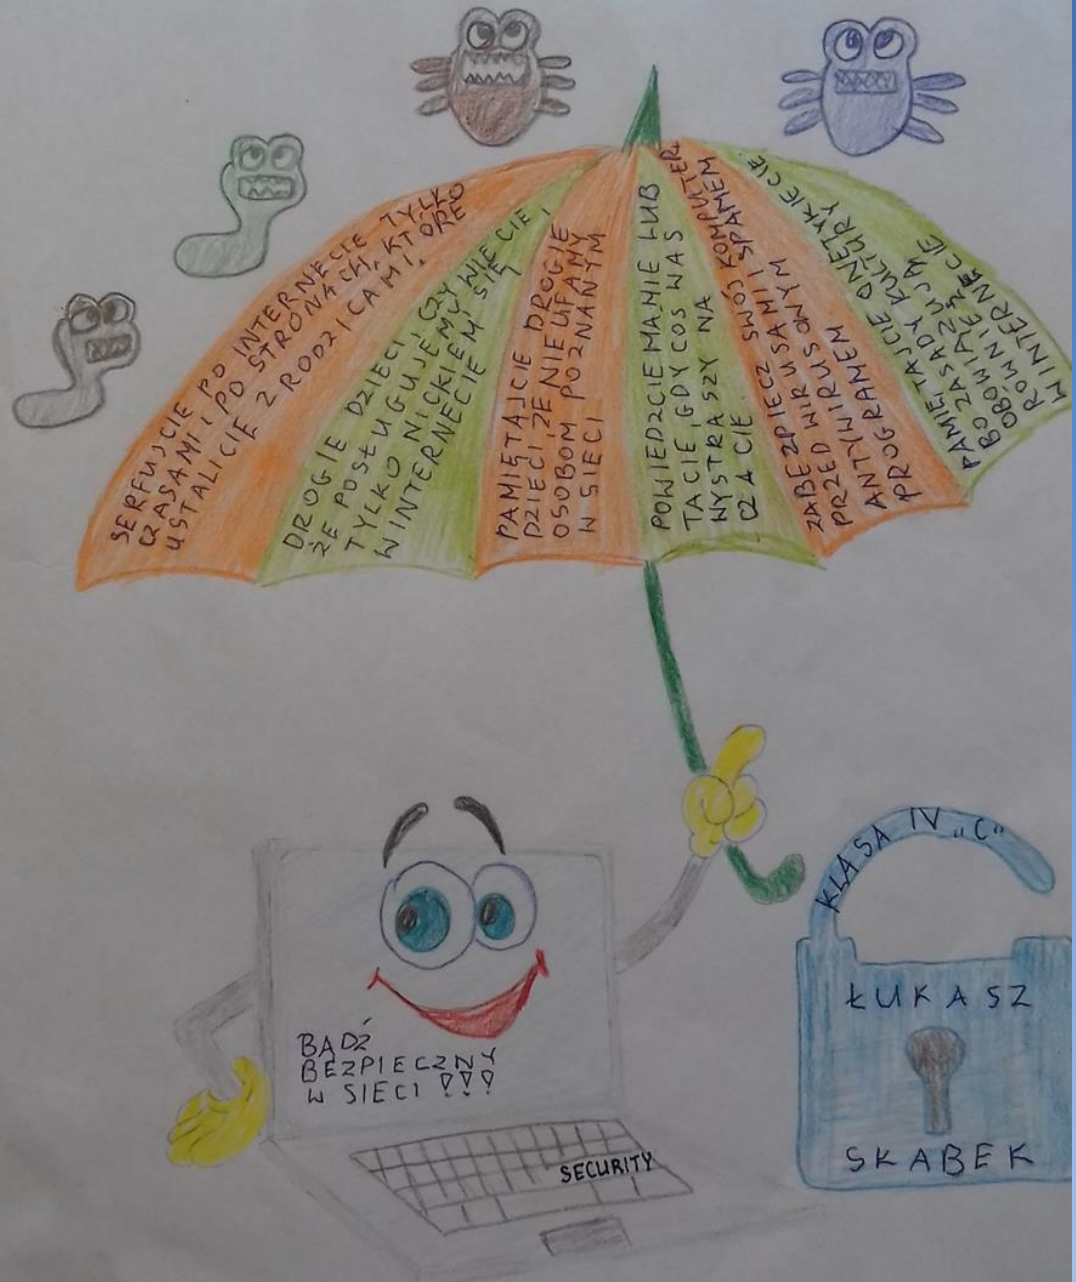 SERFUJCIE PO INTERNECIE TYLKO
CZASAMI I PO STRONACH, KTÓRE
USTALICIE Z RODZICAMI.
DROGIE DZIECI CZY WIECIE,
ŻE POSŁUGUJEMY SIĘ
TYLKO NICKIEM
W INTERNECIE
PAMIĘTAJCIE DROGIE
DZIECI, ŻE NIE UFAMY
OSOBOM POZNANYM
W SIECI
POWIEDZCIE MAMIE LUB
TACIE, GDY COŚ WAS
WYSTRASZY NA
CZACIE
ZABEZPIECZ SWÓJ KOMPUTER
PRZED WIRUSAMI I SPAMEM
ANTYWIRUSOWYM
PROGRAMEM
PAMIĘTAJCIE O NETYKIECIE
BO ZASADY KULTURY
OBOWIĄZUJĄ
RÓWNIEŻ
W INTERNECIE
KLASA IV „C"
ŁUKASZ
SKABEK
BĄDŹ
BEZPIECZNY
W SIECI !!!
SECURITY